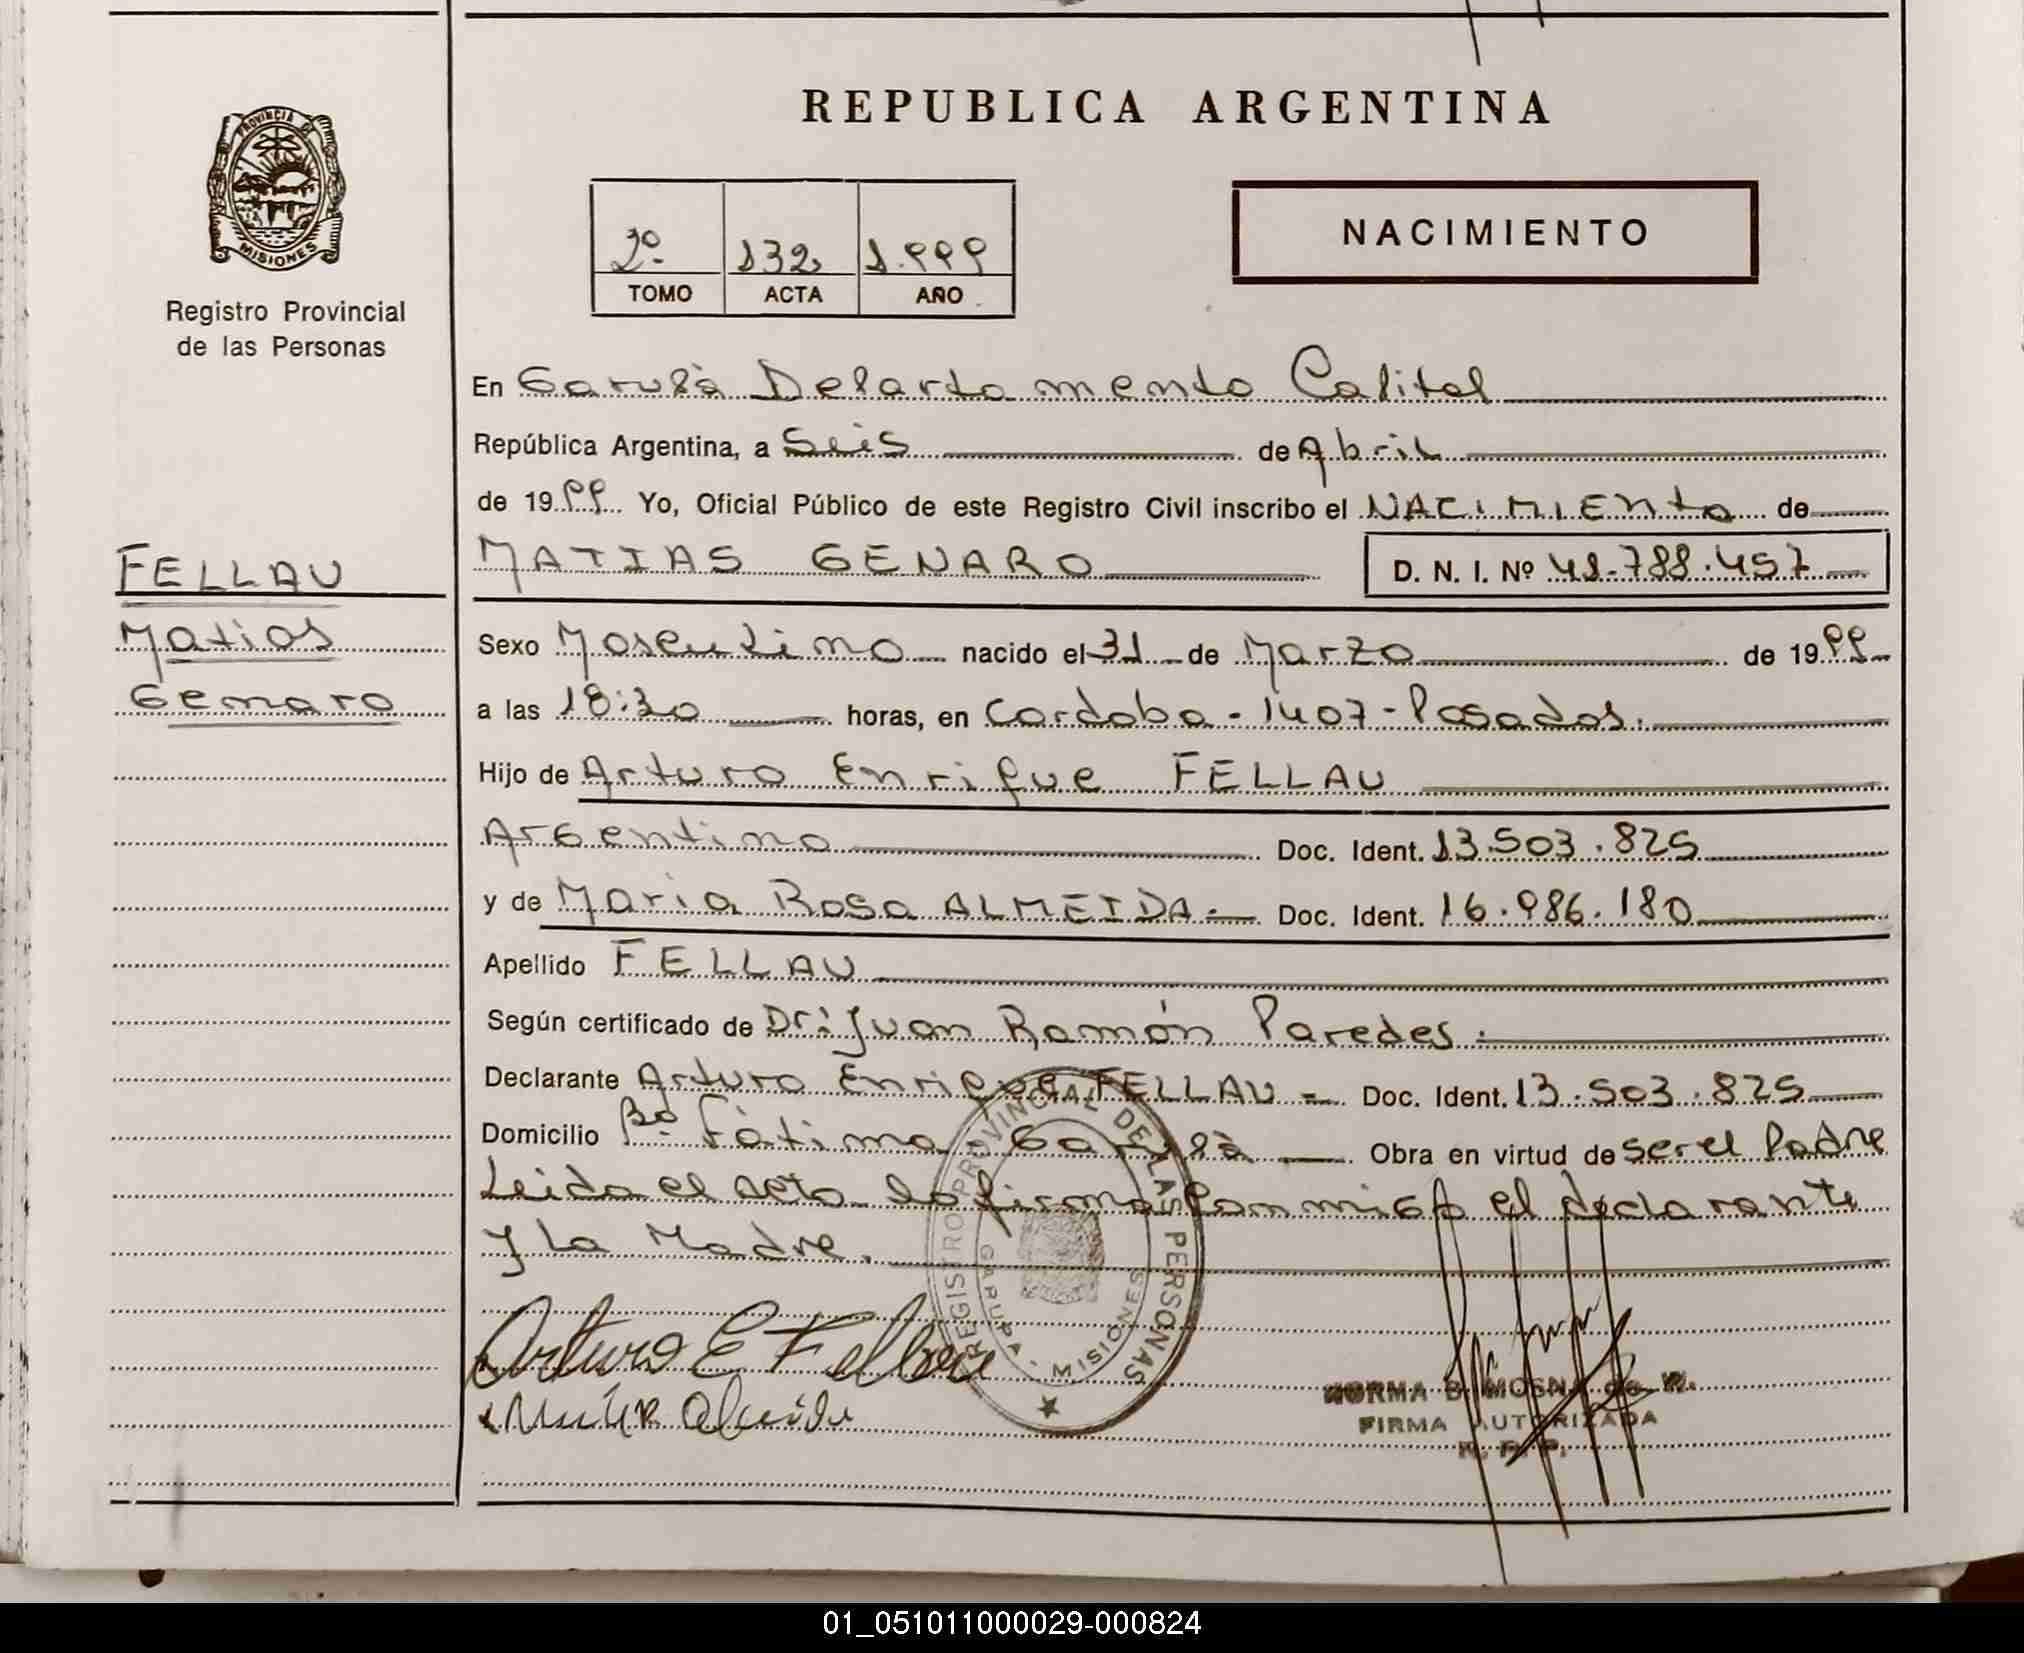 REPUBLICA ARGENTINA
PROVINCIA DE
MISIONES
Registro Provincial
de las Personas
2º 132 1.999
TOMO ACTA AÑO
NACIMIENTO
En Garupà Departamento Capital
República Argentina, a Seis de Abril
de 1999 Yo, Oficial Público de este Registro Civil inscribo el NACIMIENto de
FELLAU
MATIAS GENARO D. N. I. Nº 41.788.457
Matias
Sexo Masculino nacido el 31 de Marzo de 1999
Genaro
a las 18:30 horas, en Cordoba - 1407 - Posadas.
Hijo de Arturo Enrique FELLAU
Argentino Doc. Ident. 13.503.825
y de Maria Rosa ALMEIDA. Doc. Ident. 16.986.180
Apellido FELLAU
Según certificado de Dr: Juan Ramón Paredes.
Declarante Arturo Enrique FELLAU Doc. Ident. 13.503.825
Domicilio Bº Fátima Garupà Obra en virtud de ser el Padre
Leida el acta la firma conmigo el declarante
y La Madre.
REGISTRO PROVINCIAL DE LAS PERSONAS
GARUPA - MISIONES
Arturo E Fellau
NORMA B. MOSNA de W.
FIRMA AUTORIZADA
R. P. P.
01_051011000029-000824